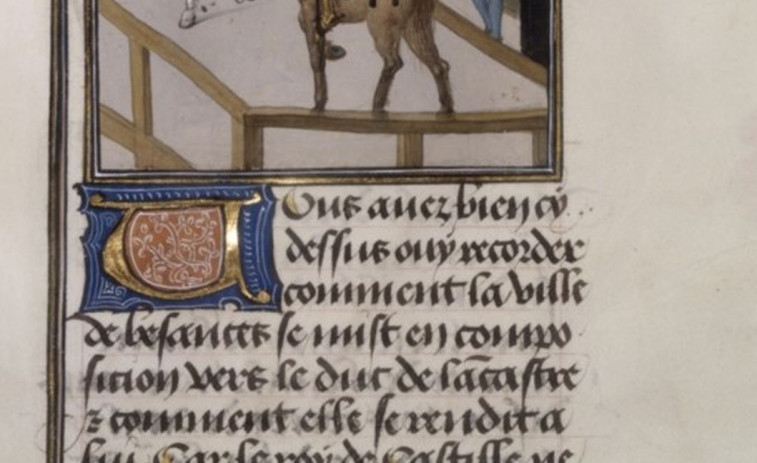 Vous auez bien cy
dessus ouy recorder
comment la ville
de besances se mist en compo
sicion vers le duc de lācastre
⁊ comment elle se rendit a
lui Car le roy de Castille ne